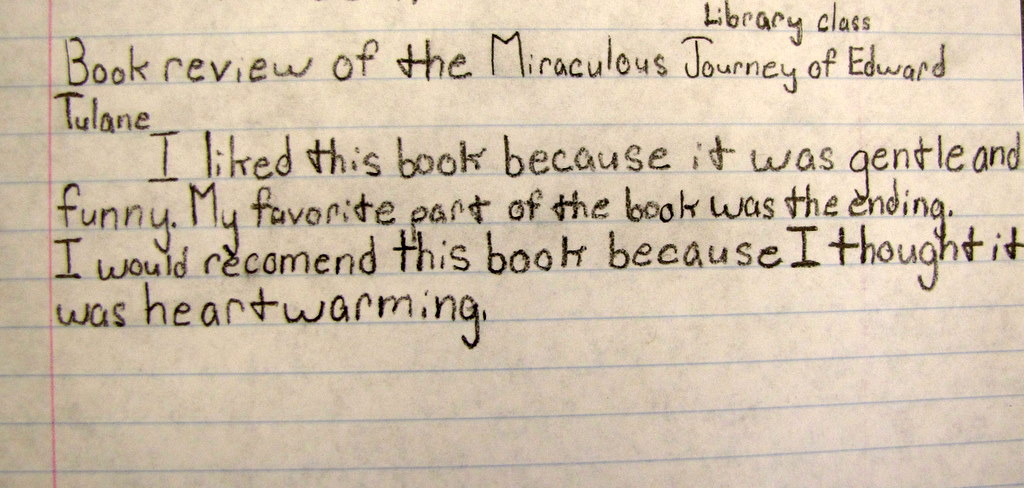 Library class
Book review of the Miraculous Journey of Edward
Tulane
I liked this book because it was gentle and
funny. My favorite part of the book was the ending.
I would recomend this book because I thought it
was heartwarming.